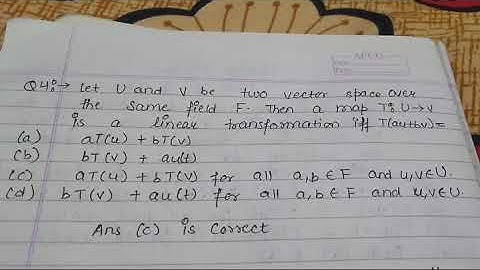 Q4:→ Let U and V be two vector space over
the same field F. Then a map T: U→V
is a linear transformation iff T(au+bv)=
(a) aT(u) + bT(v)
(b) bT(v) + au(t)
(c) aT(u) + bT(v) for all a,b ∈ F and u,v ∈ U.
(d) bT(v) + au(t) for all a,b ∈ F and u,v ∈ U.
Ans (c) is correct